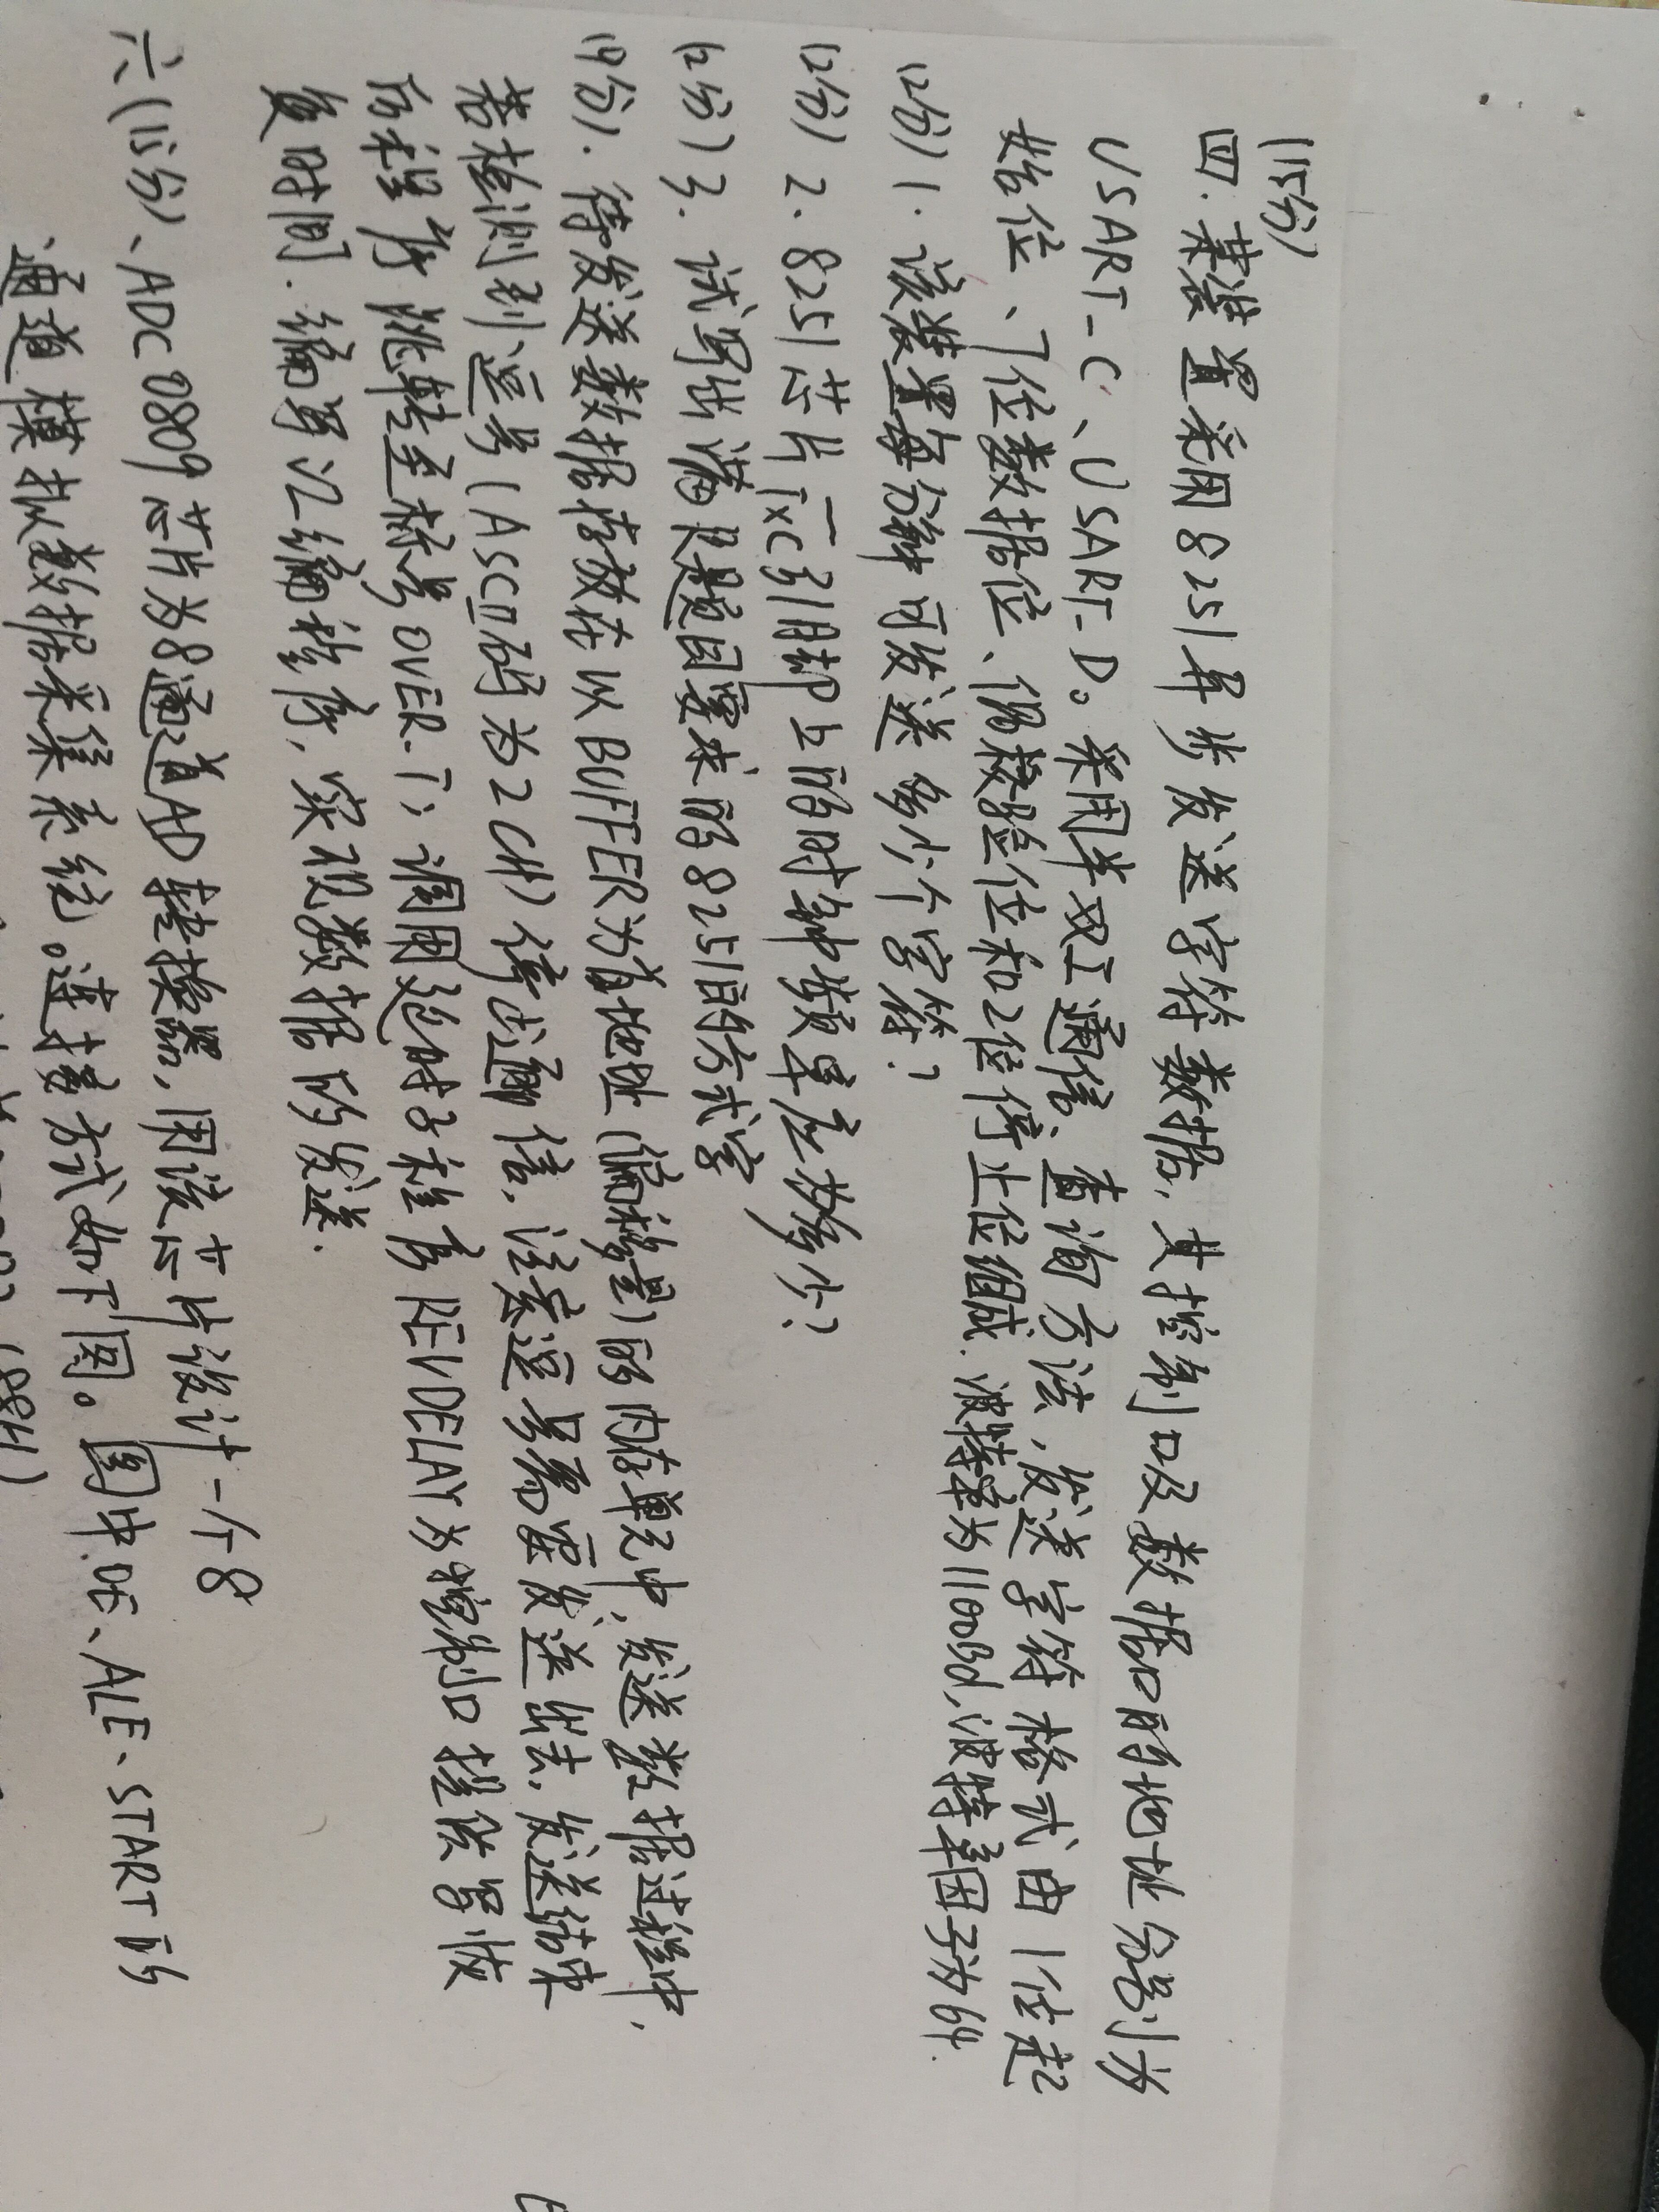 (15分)
四.某装置采用8251异步发送字符数据,其控制口及数据口的地址分别为
USART_C、USART_D。采用半双工通信、查询方法,发送字符格式由1位起
始位、7位数据位、偶校验位和2位停止位组成.波特率为1100Bd,波特率因子为64.
(2分)1.该装置每分钟可发送多少个字符?
(2分)2.8251芯片TxC引脚上的时钟频率应为多少?
(2分)3.试写出满足题目要求的8251的方式字
(9分).待发送数据存放在以BUFFER为首地址(偏移量)的内存单元中,发送数据过程中,
若检测到逗号(ASCII码为2CH)停止通信,注意逗号需要发送出去.发送结束
后程序跳转至标号OVER_T;调用延时子程序REVDELAY为控制口提供写恢
复时间.编写汇编程序,实现数据的发送.
六(15分)、ADC0809芯片为8通道AD转换器,用该芯片设计一个8
通道模拟数据采集系统。连接方式如下图。图中OE、ALE、START的
(88H)